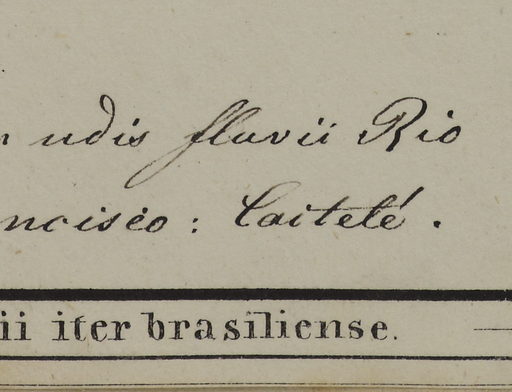 udis fluvii Rio
ncisco : Caiteté .
ii iter brasiliense.